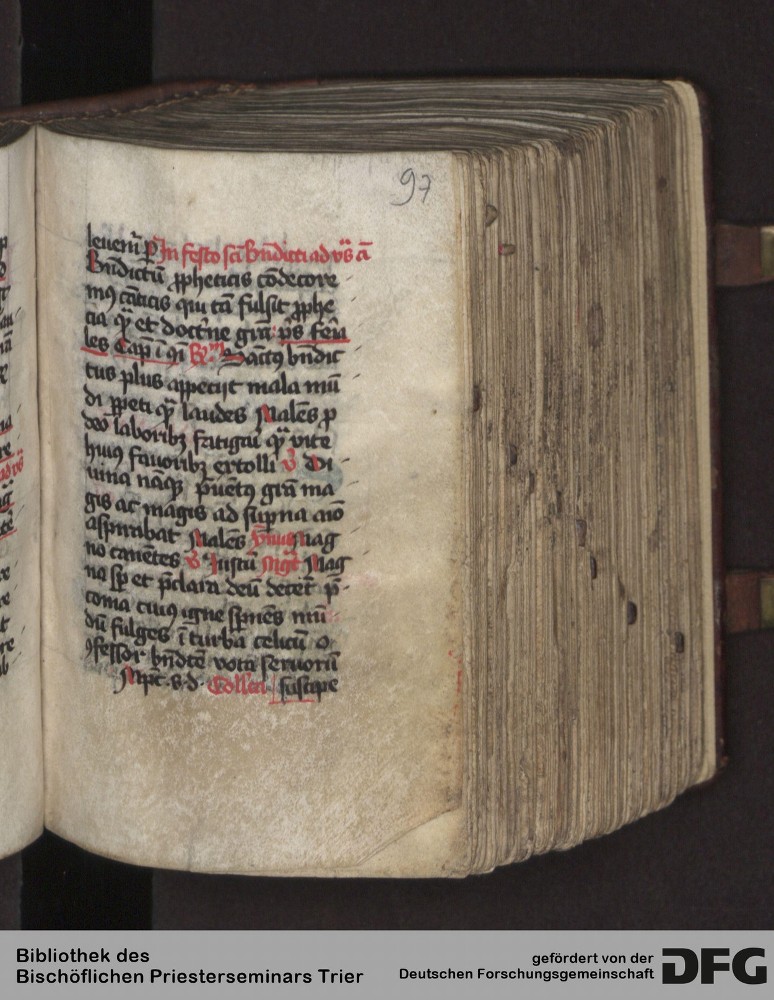 97
leueni͞ P̄ In festo sc̄i Bn̄dicti ad vs̄ a͞
Bn̄dictū ꝓpheticis cōdecore
mꝰ cāticis qui tā fulsit ꝓphe
cia qͣ et doctͥne grā p̄s feīa
les Cap̄ ī qͥ R̄ Sanctꝰ bn̄dic
tus plus appetijt mala mū
di ꝑpeti qͣ laudes Males ꝓ
deo laboribꝫ fatigari qͣ vite
huiꝰ fauoribꝫ extolli v̄ Di
uina nāqꝫ p̄uētꝰ grā ma
gis ac magis ad suꝑna aīo
aspirabat Males Ymnꝰ Mag
no canētes v̄ Justū Mgͣt Mag
na sꝑ et p̄clara deū decēt p̄
conia cuiꝰ igne sꝑnēs mū
dū fulges ī turba celicū o
ꝯfessor bn̄dcē vota seruorū
Mp̄c s d Colleā suscipe
Bibliothek des
Bischöflichen Priesterseminars Trier
gefördert von der
Deutschen Forschungsgemeinschaft
DFG